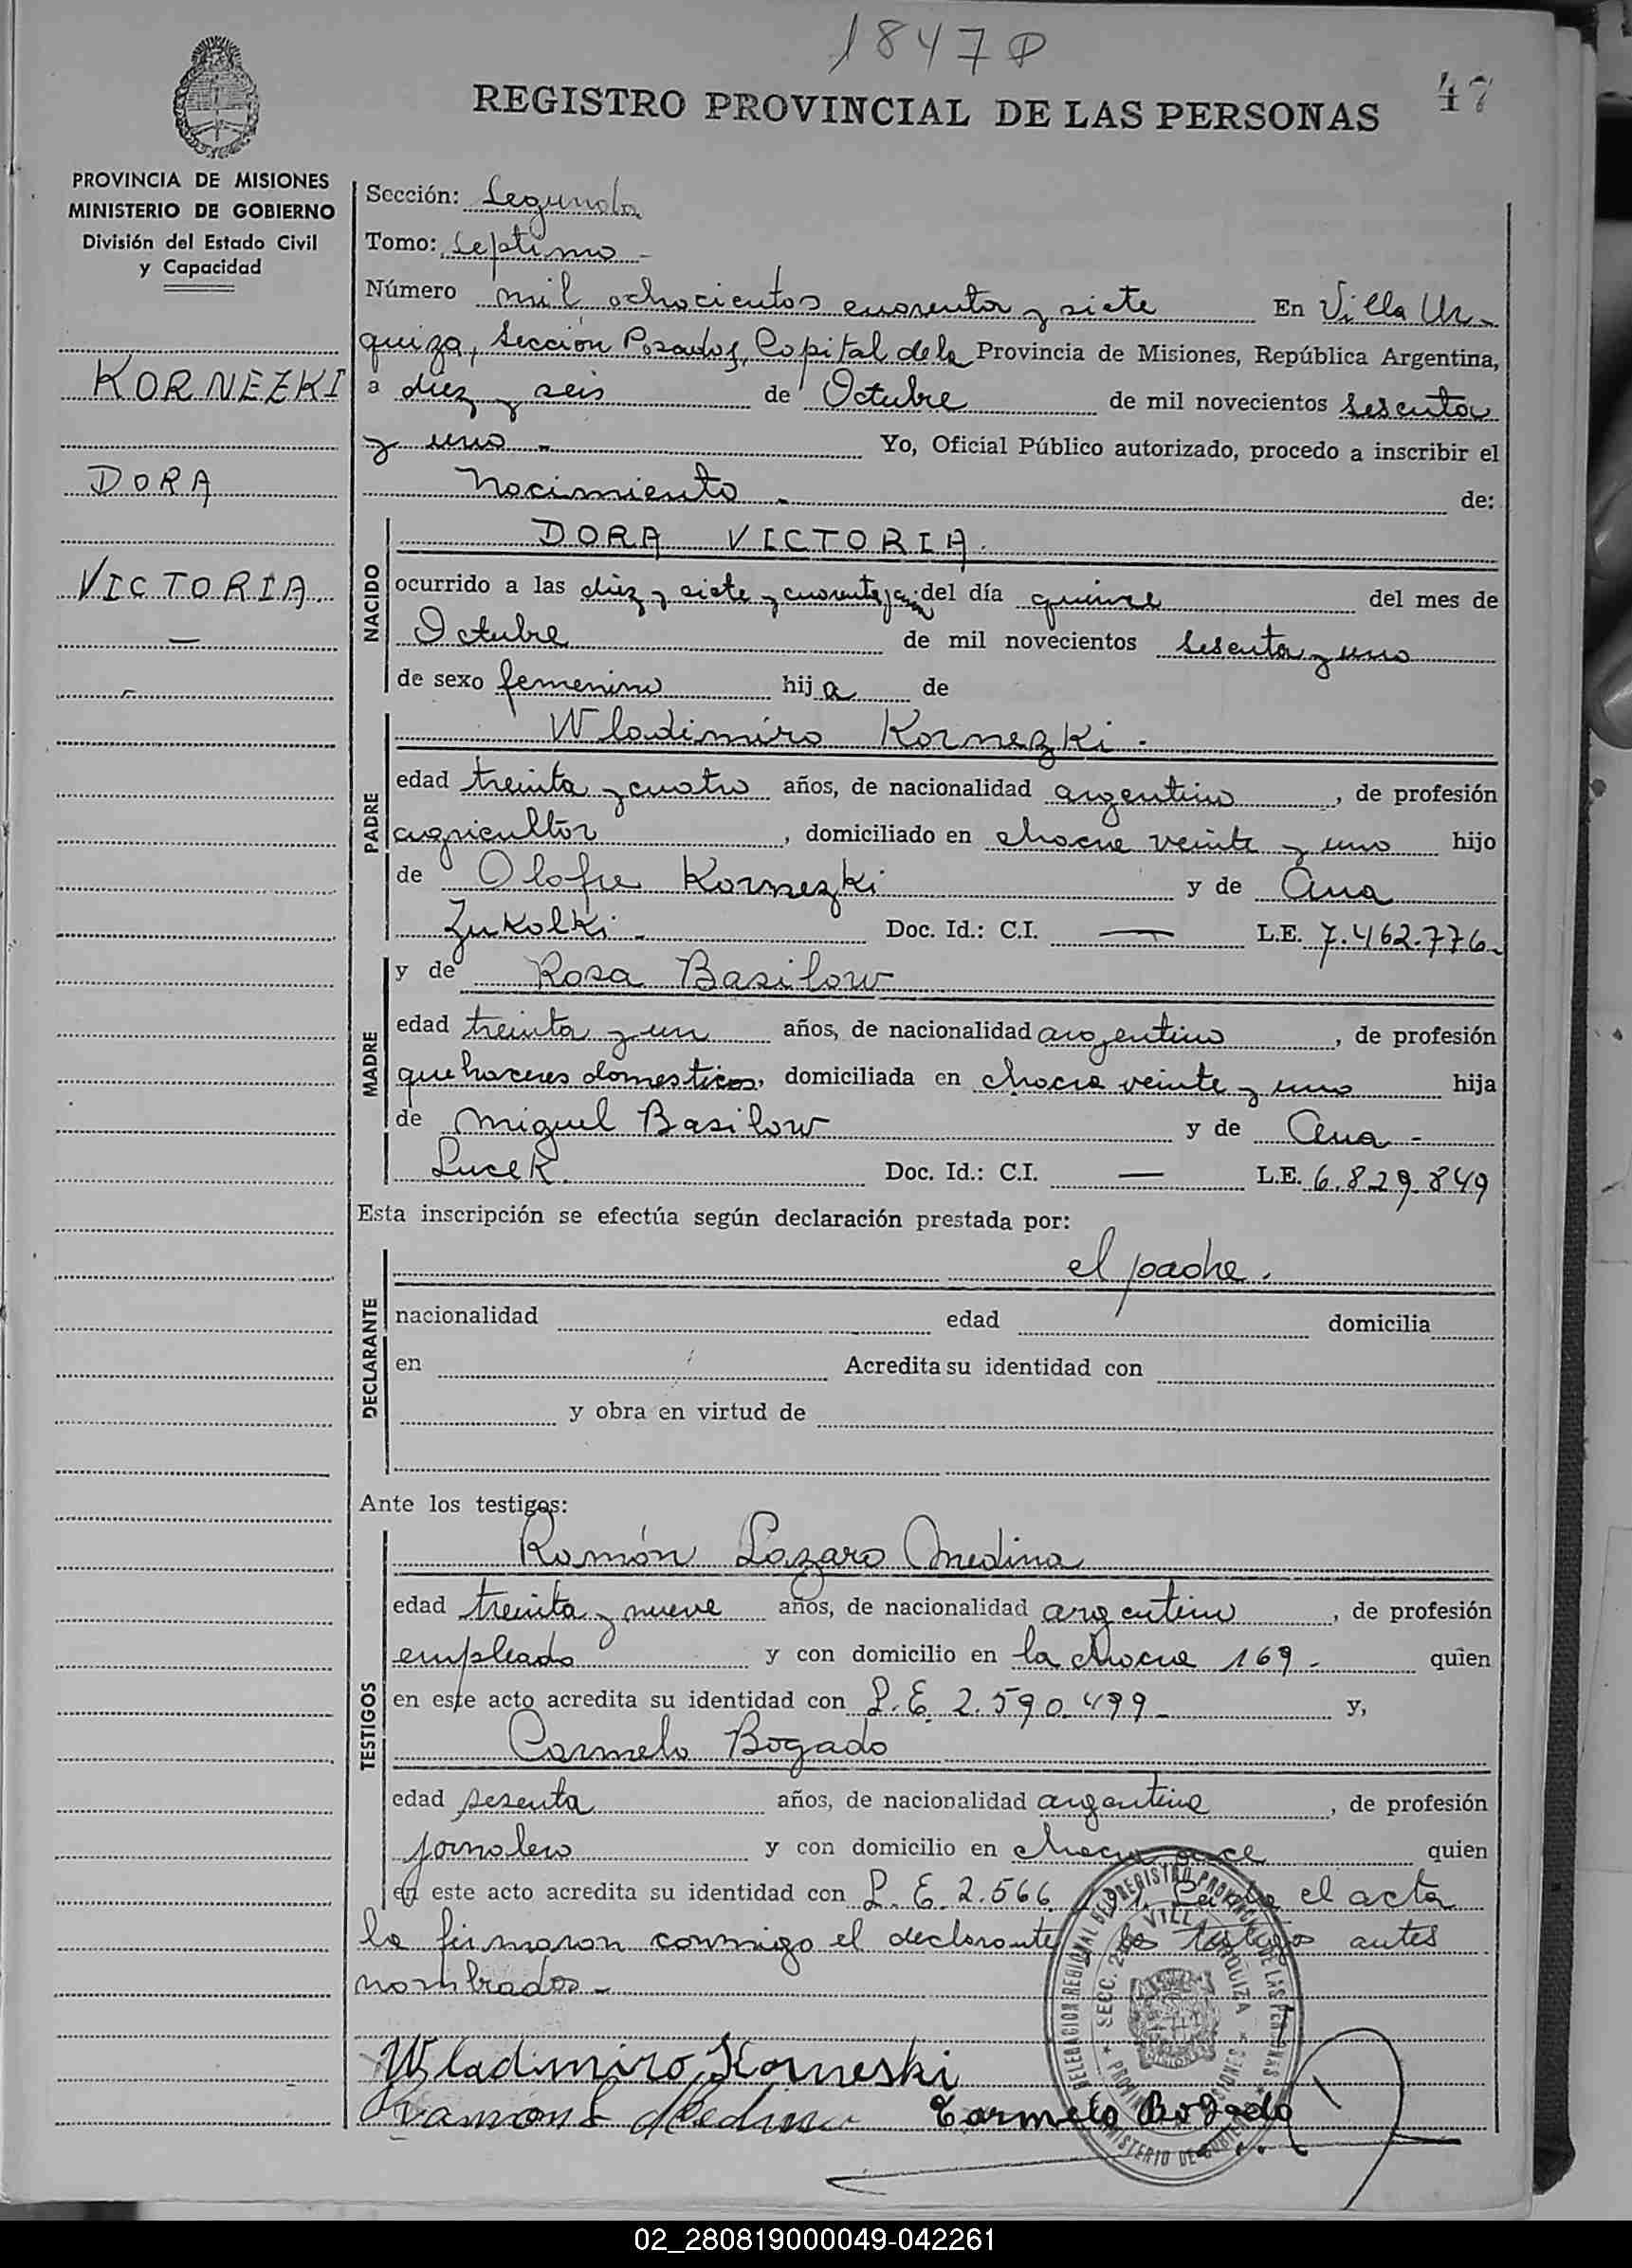 1847 P
47
REGISTRO PROVINCIAL DE LAS PERSONAS
PROVINCIA DE MISIONES
MINISTERIO DE GOBIERNO
División del Estado Civil
y Capacidad
KORNEZKI
DORA
VICTORIA
Sección: Segunda
Tomo: Septimo
Número mil ochocientos cuarenta y siete En Villa Ur-
quiza, Sección Posadas, Capital de la Provincia de Misiones, República Argentina,
a diez y seis de Octubre de mil novecientos sesenta
y uno.- Yo, Oficial Público autorizado, procedo a inscribir el
Nacimiento - de:
NACIDO
DORA VICTORIA.
ocurrido a las diez y siete y cuarenta y del día quince del mes de
Octubre de mil novecientos sesenta y uno
de sexo femenino hija de
PADRE
Wladimiro Kornezki.
edad treinta y cuatro años, de nacionalidad argentino, de profesión
agricultor, domiciliado en chacra veinte y uno hijo
de Olofre Kornezki y de Ana
Zukolki.- Doc. Id.: C.I. — L.E. 7.462.776-
MADRE
y de Rosa Basilow
edad treinta y un años, de nacionalidad argentino, de profesión
quehaceres domesticos, domiciliada en chacra veinte y uno hija
de Miguel Basilow y de Ana -
Lucek. Doc. Id.: C.I. — L.E. 6.829.849
Esta inscripción se efectúa según declaración prestada por:
DECLARANTE
el padre.
nacionalidad edad domicilia
en Acredita su identidad con
y obra en virtud de
Ante los testigos:
TESTIGOS
Ramón Lazaro Medina
edad treinta y nueve años, de nacionalidad argentino, de profesión
empleado y con domicilio en la chacra 169 - quien
en este acto acredita su identidad con L.E. 2.590.499- y,
Carmelo Bogado
edad sesenta años, de nacionalidad argentina, de profesión
jornalero y con domicilio en chacra once quien
en este acto acredita su identidad con L.E. 2.566. Leida el acta
la firmaron conmigo el declarante los testigos antes
nombrados.-
Wladimiro Korneski
Ramón L Medina Carmelo Bogado
DELEGACION REGIONAL DEL REGISTRO PROVINCIAL DE LAS PERSONAS
SECC. 2da VILLA URQUIZA
PROVINCIA MISIONES
MINISTERIO DE GOBIERNO
02_280819000049-042261